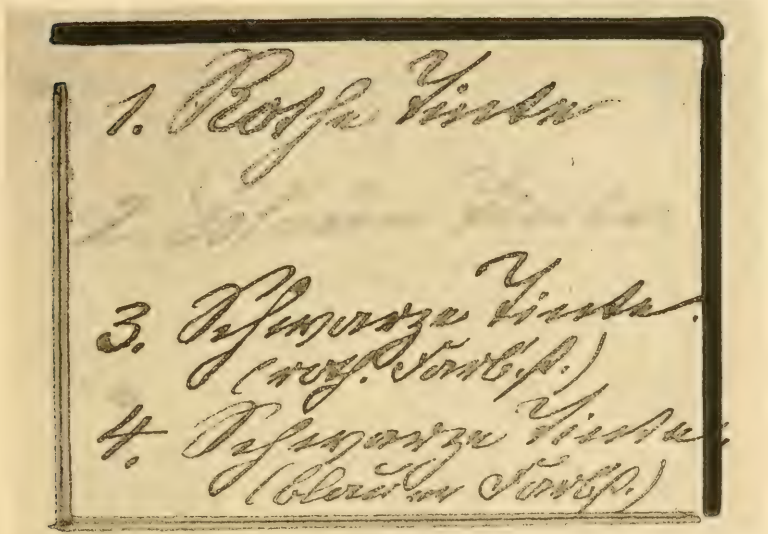 1. Rothe Tinte
2.
3. Schwarze Tinte.
(roth. Farbst.)
4. Schwarze Tinte.
(blauer Farbst.)